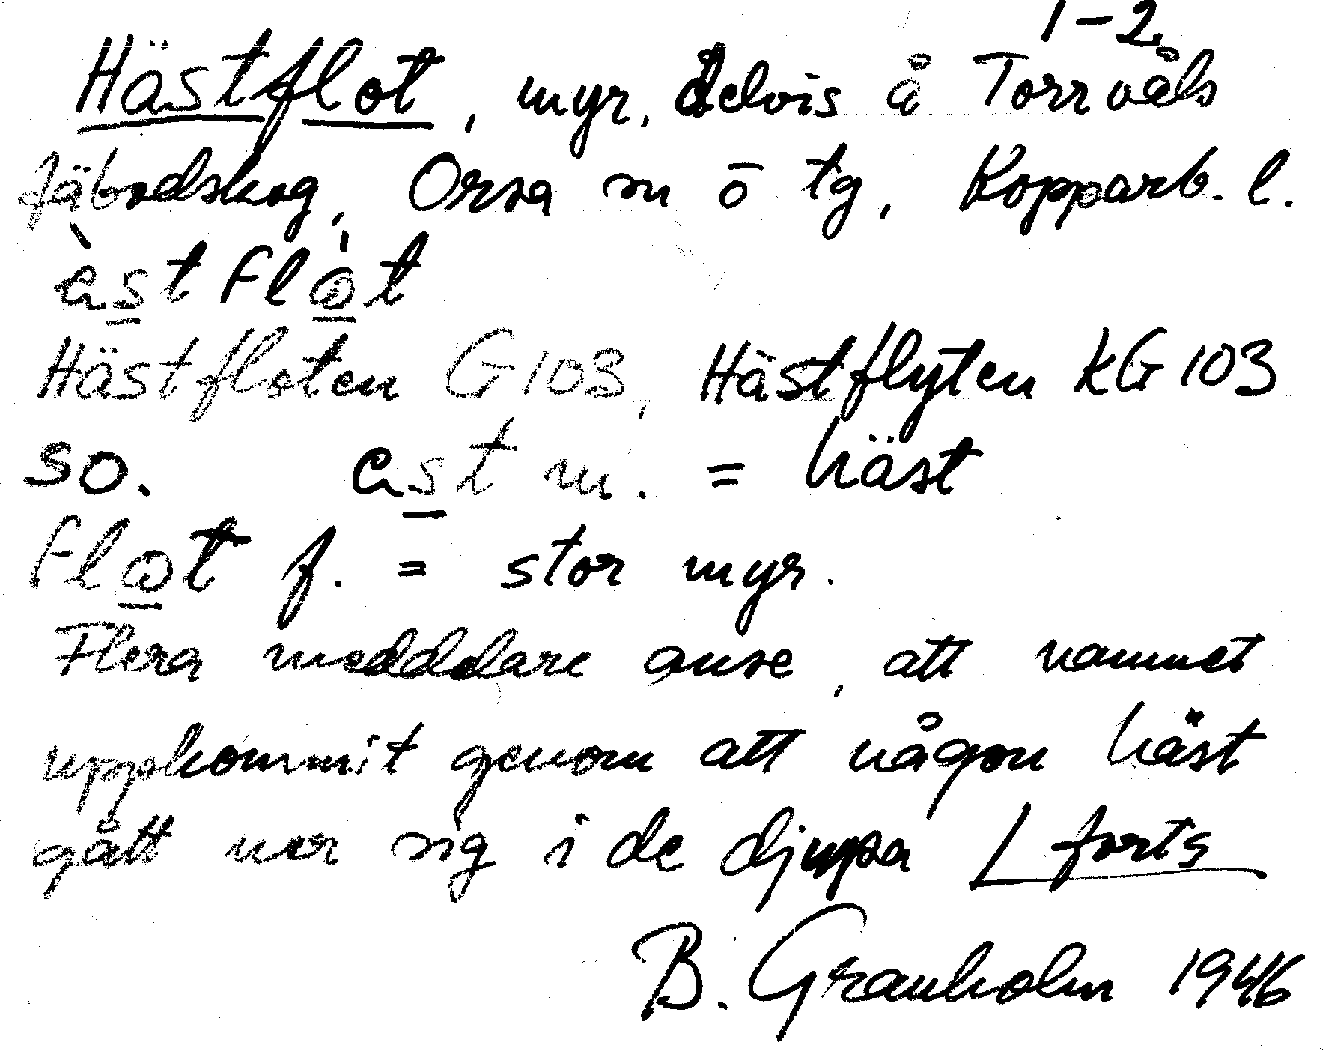 1-2
Hästflot, myr, delvis å Torrvåls
fäbodskog, Orsa sn ö tg, Kopparb. l.
àstflò̱t
Hästfloten G103, Hästflyten KG103
SO. ast m. = häst
flot f. = stor myr.
Flera meddelare anse, att namnet
uppkommit genom att någon häst
gått ner sig i de djupa forts
B. Granholm 1946